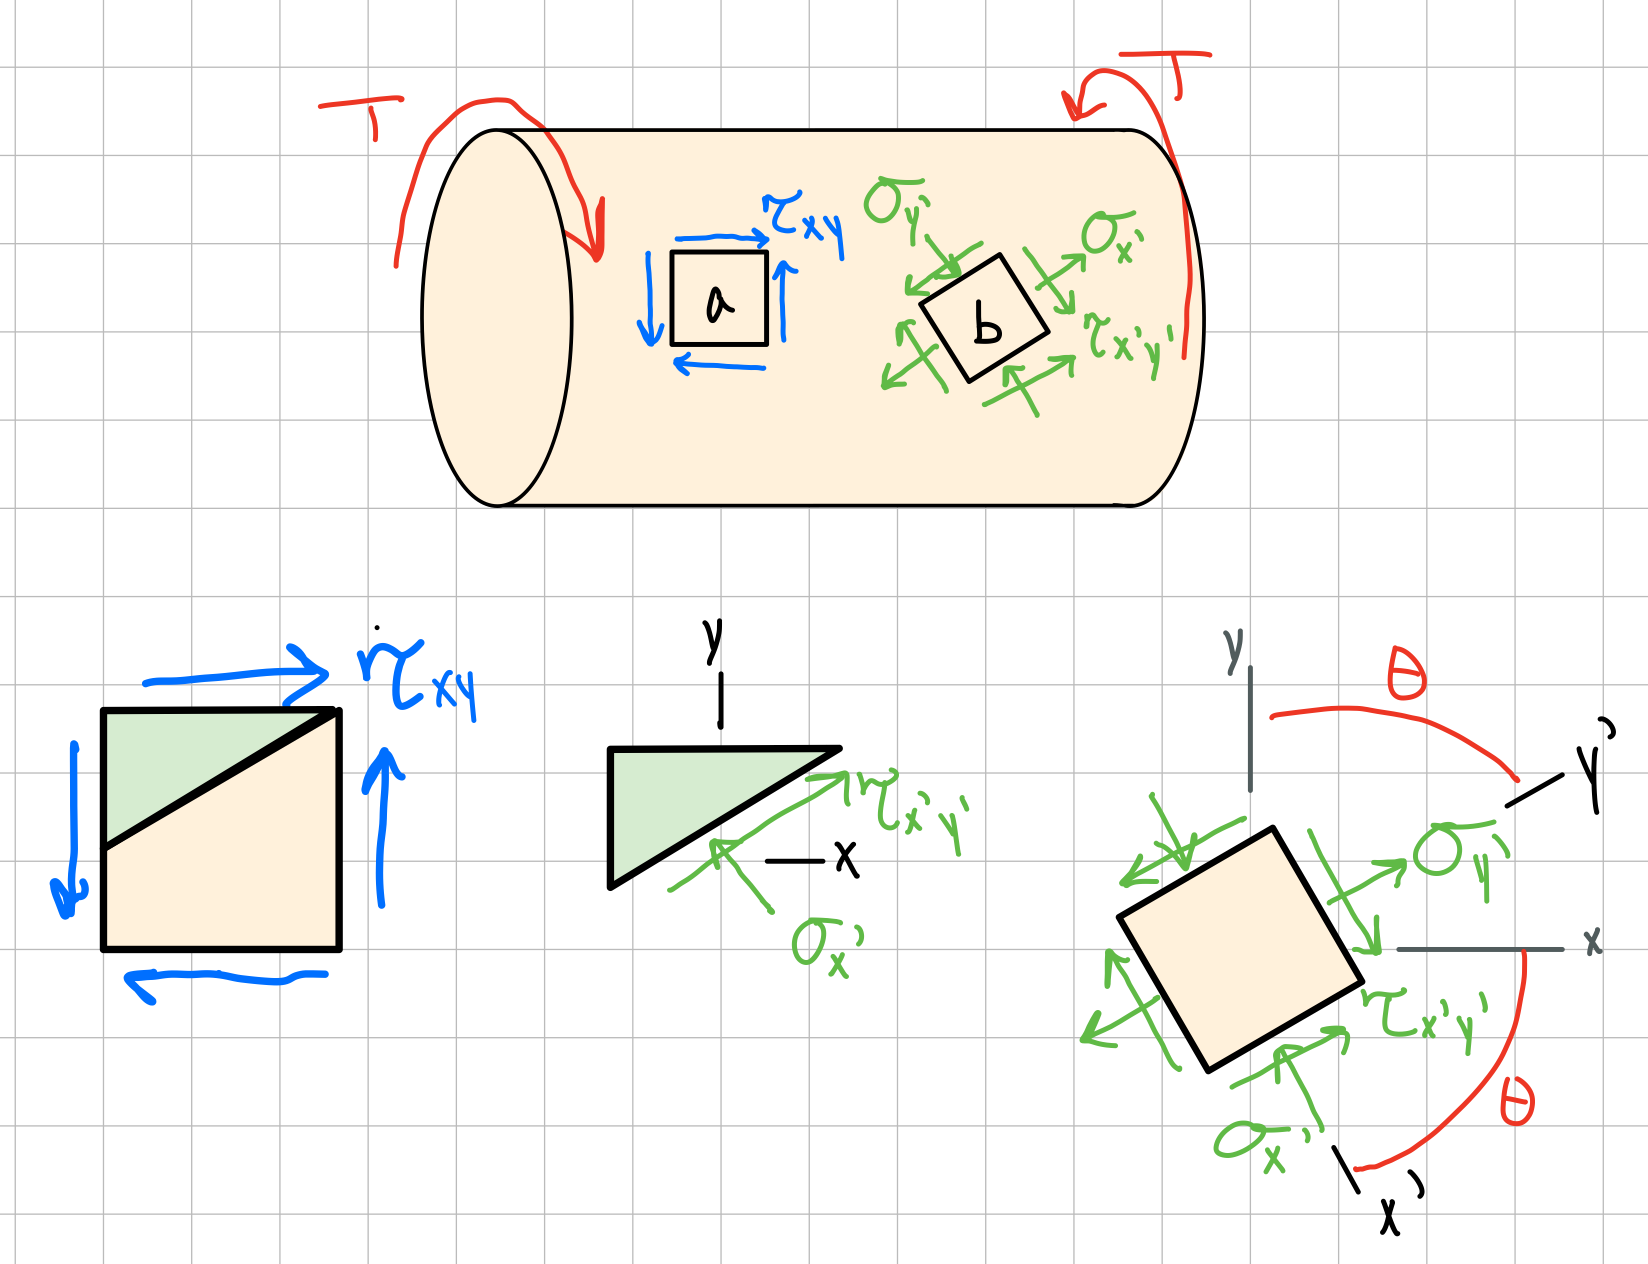 T
T
τxy
a
σy'
σx'
b
τx'y'
τxy
y
τx'y'
x
σx'
y
θ
y'
σy'
x
τx'y'
θ
σx'
x'